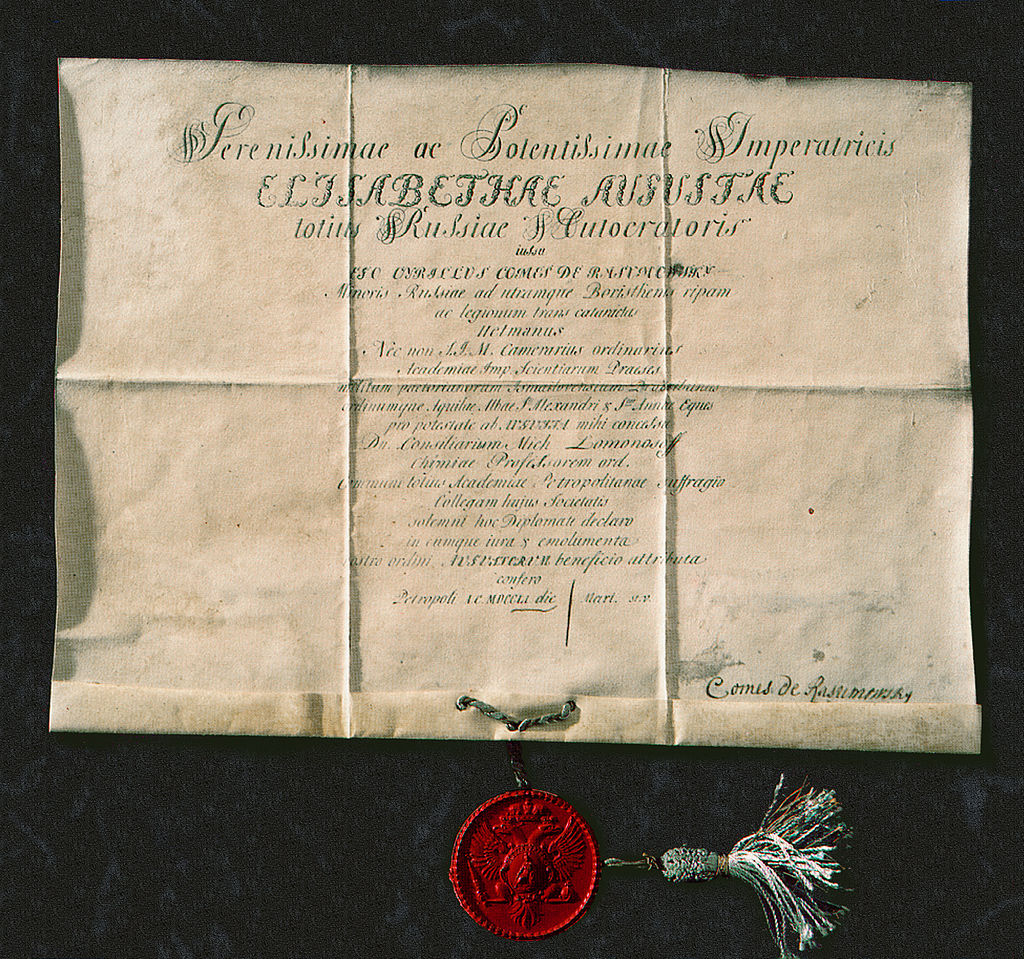 Serenissimae ac Potentissimae Imperatricis
ELISABETHAE AUGUSTAE
totius Russiae Autocratoris
iussu
EGO CYRILLUS COMES DE RASUMOWSKY
Minoris Russiae ad utramque Boristhenis ripam
ac legionum trans
Hetmanus
Nec non S.I.M. Camerarius ordinarius
Academiae Imp Scientiarum Praeses
militum praetorianorum Ismailoviensium
ordinumque Aquilae Albae S. Alexandri & S.ae Annae Eques
pro potestate ab AUGUSTA mihi concessa
Dn. Consiliarium Mich Lomonosoff
Chimiae Professorem ord.
Communi totius Academiae Petropolitanae suffragio
Collegam hujus Societatis
solemni hoc Diplomate declaro
in eumque iura & emolumenta
nostro ordini AUGUSTORUM beneficio attributa
confero
Petropoli A.C. MDCCLI die Mart. st. v.
Comes de Rasumowsky